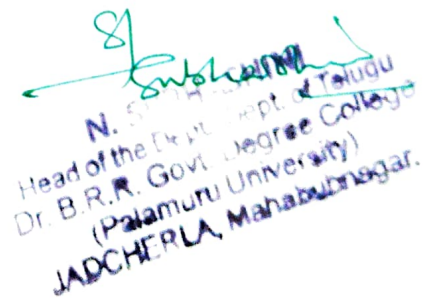 N.
Head of the Dept. Dept. of Telugu
Dr. B.R.R. Govt. Degree College
(Palamuru University)
JADCHERLA, Mahabubnagar.